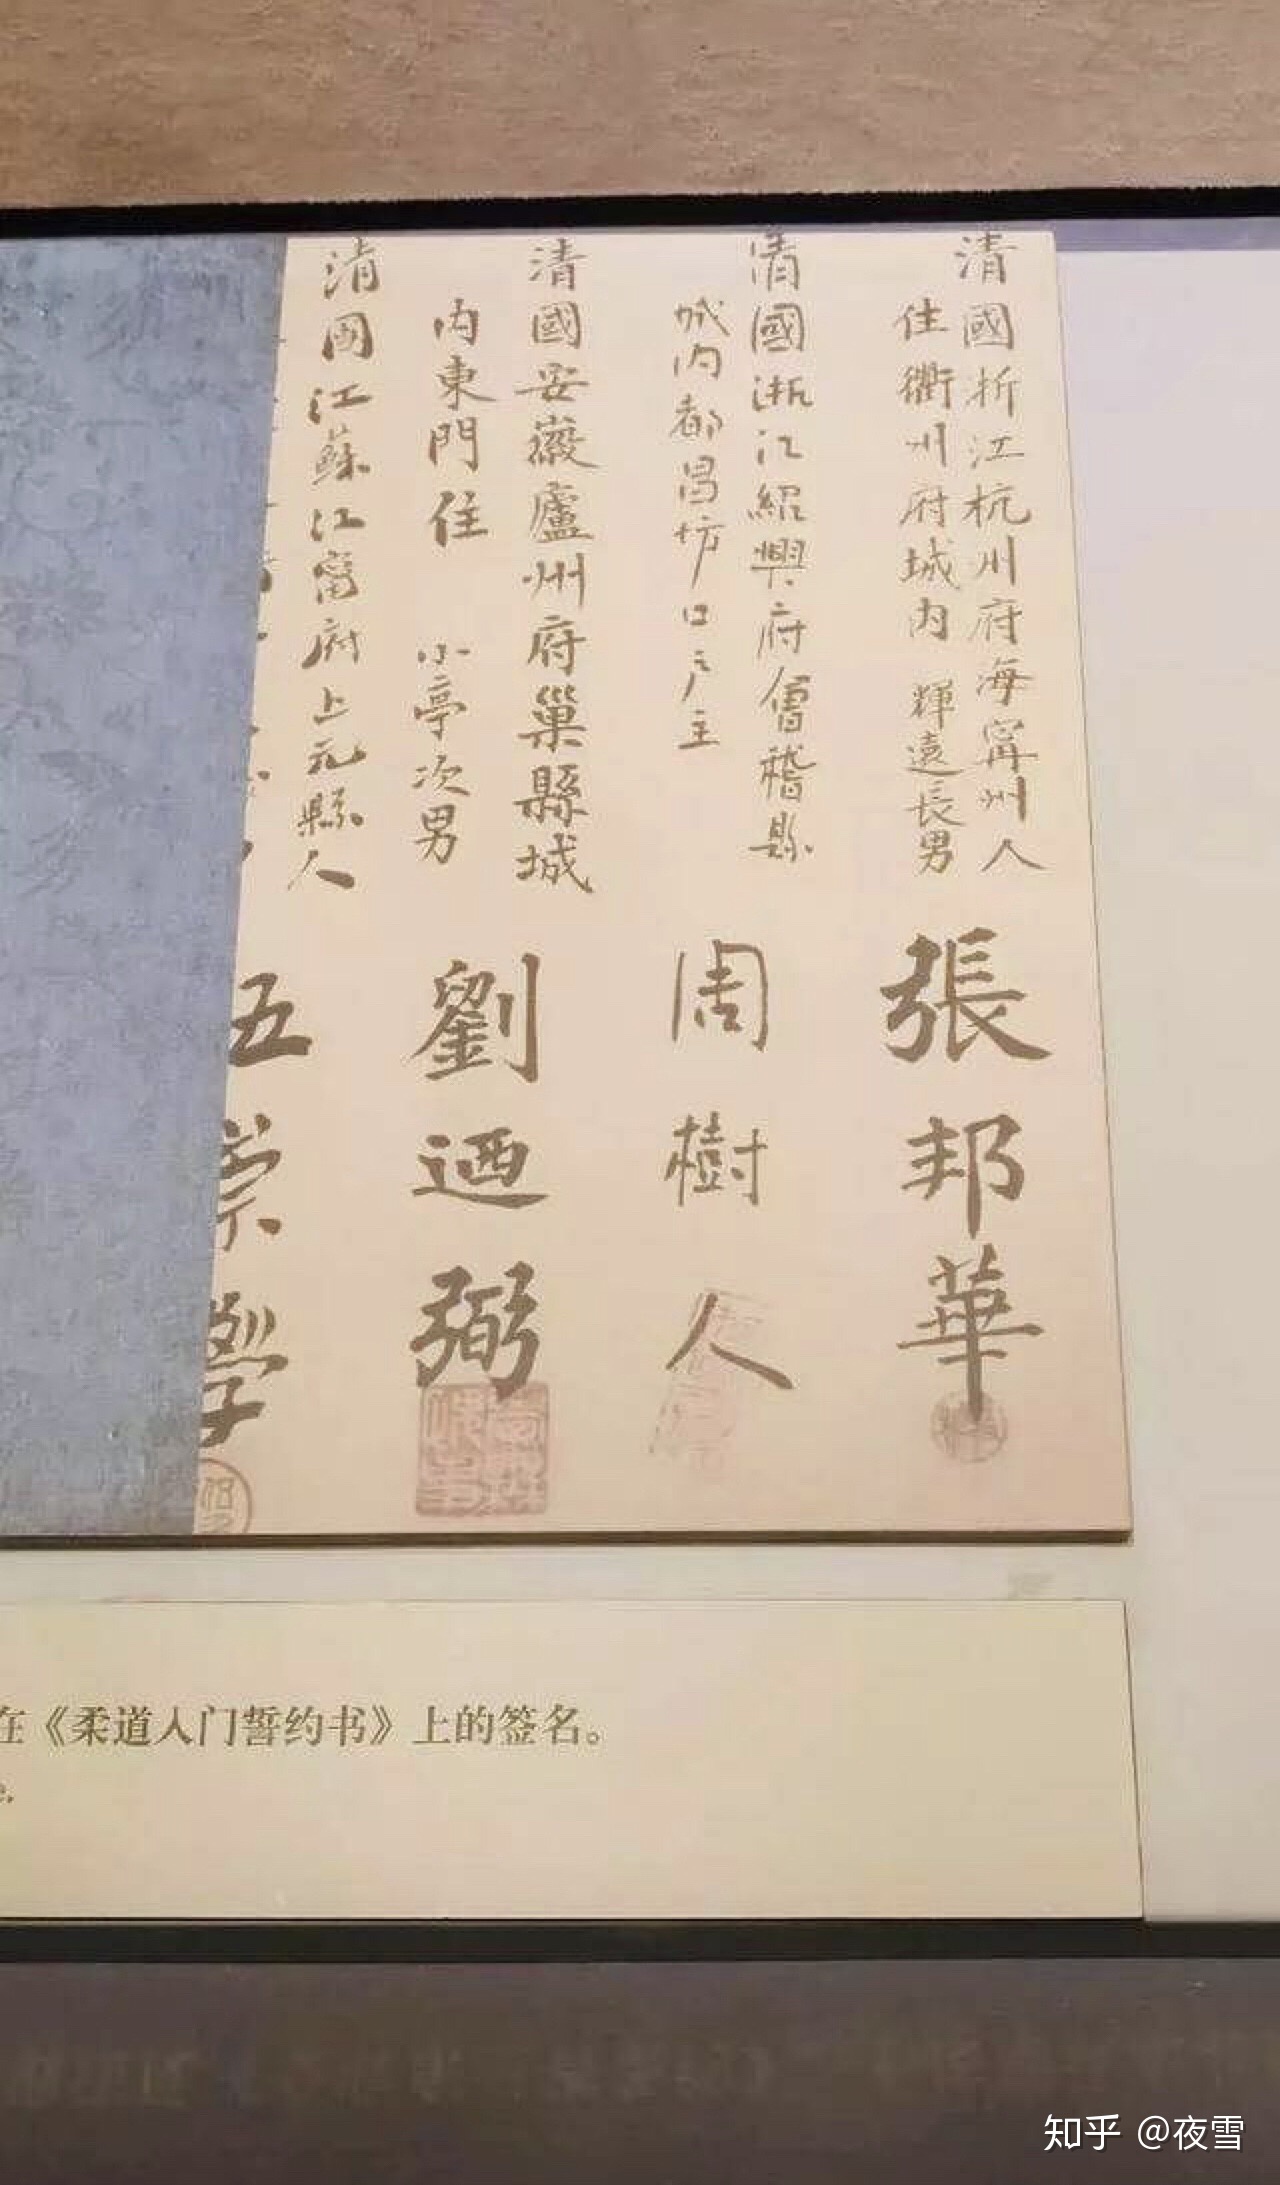 清國折江杭州府海甯州人
住衢州府城内 輝遠長男
張邦華
清國浙江紹興府會稽縣
城内都昌坊口 戶主
周樹人
清國安徽廬州府巢縣城
内東門住 小亭次男
劉迺弼
清國江蘇江甯府上元縣人
五崇學
在《柔道入门誓约书》上的签名。
知乎 @夜雪